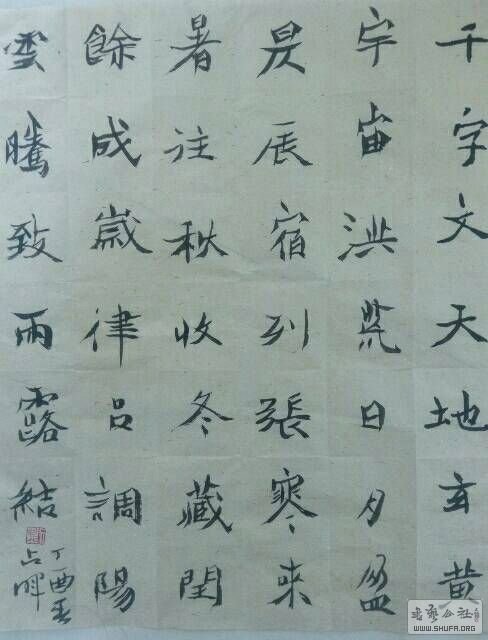 千字文天地玄黄
宇宙洪荒日月盈
昃辰宿列張寒来
暑往秋收冬藏閏
餘成歲律吕調陽
雲騰致雨露結
丁酉春
书艺公社
WWW.SHUFA.ORG